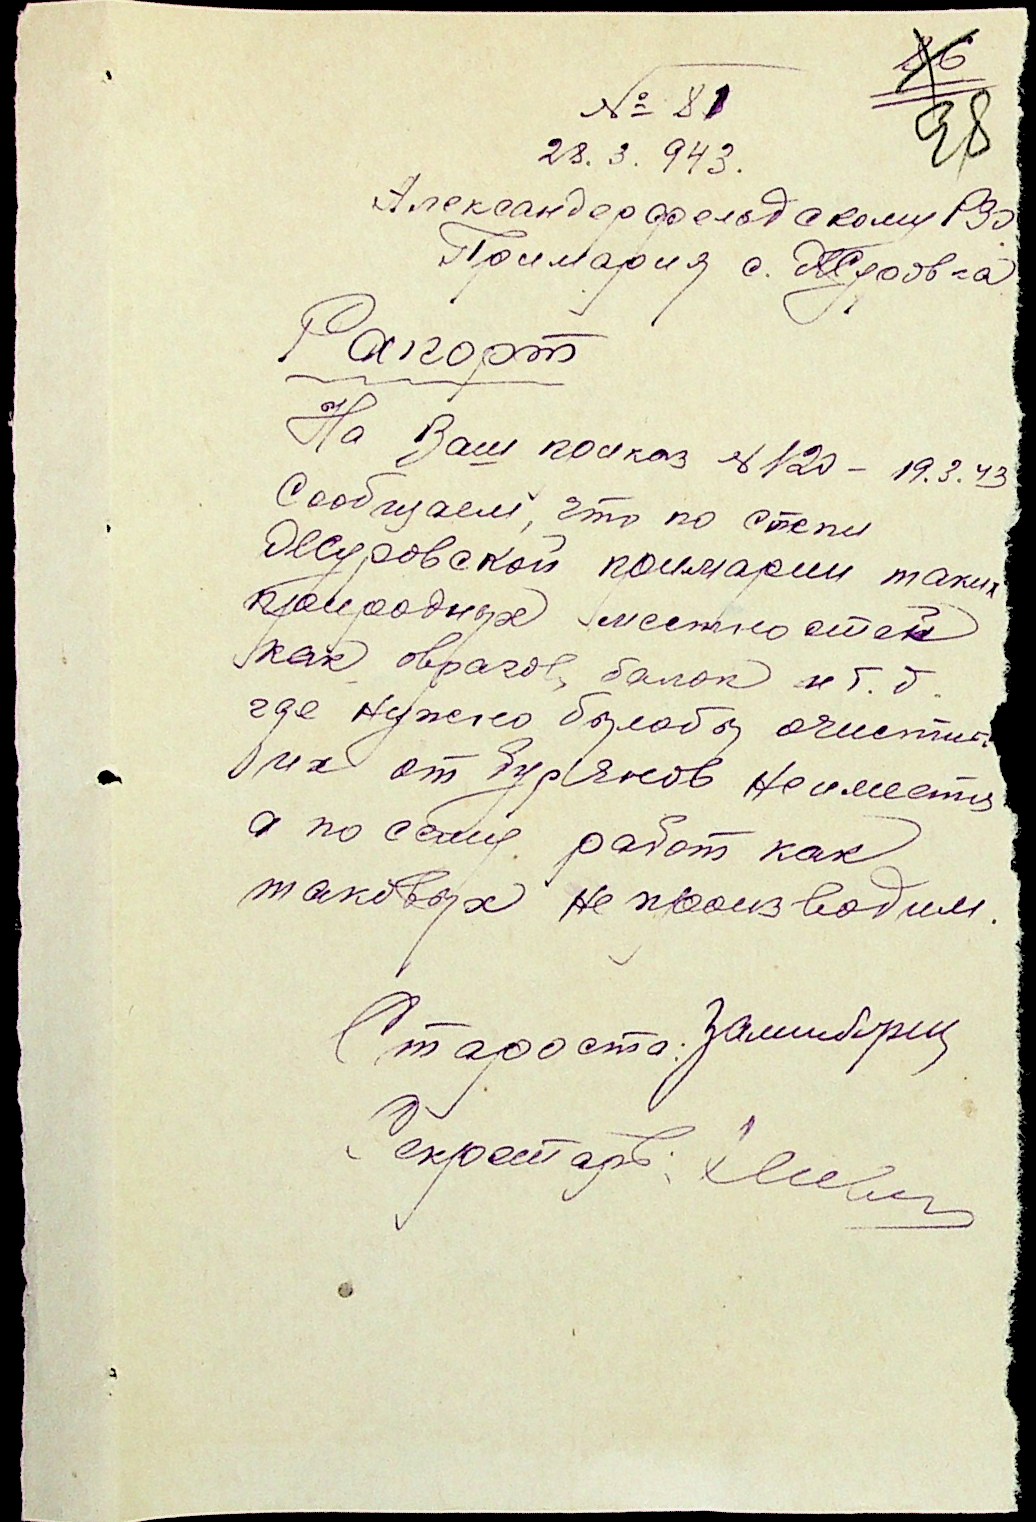 86
98
№ 81
28.3.943.
Александерфельдскому РЗО
Примария с. Журовка
Рапорт
На Ваш приказ № 120 – 19.3.43
Сообщаем, что по степи
Журовской примарии таких
природных местностей
как оврагов, балок и т.д.
где нужно былобы очистить
их от бурянов неимеется
а по сему работ как
таковых не производим.
Староста:
Секретарь: